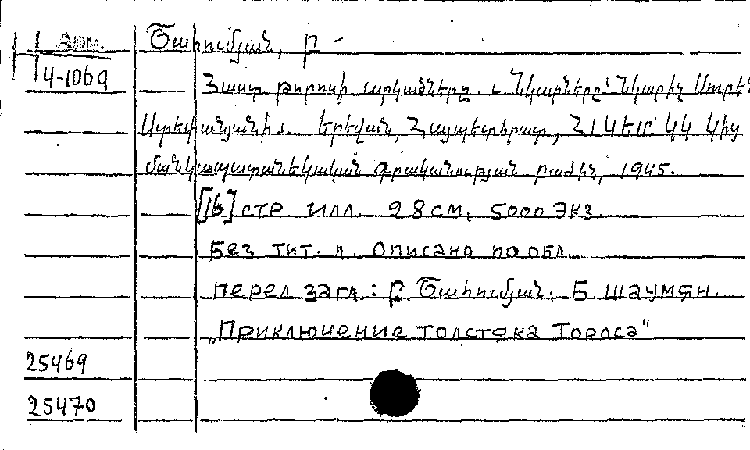 1 арм.
Շահումյան, Բ
4-1069
Հաստ թորոսի արկածները. Նկարները՝ նկարիչ Սուրեն
Ստեփանյանի. Երևան, Հայպետհրատ, ՀԼԿԵՄ ԿԿ կից
մանկապատանեկական գրականության բաժին, 1945.
[16] стр илл. 28см, 5000 экз.
Без тит. л. Описано по обл
перел загл: Բ Շահումյան. Б Шаумян.
„Приключение толстяка Тороса"
25469
25470